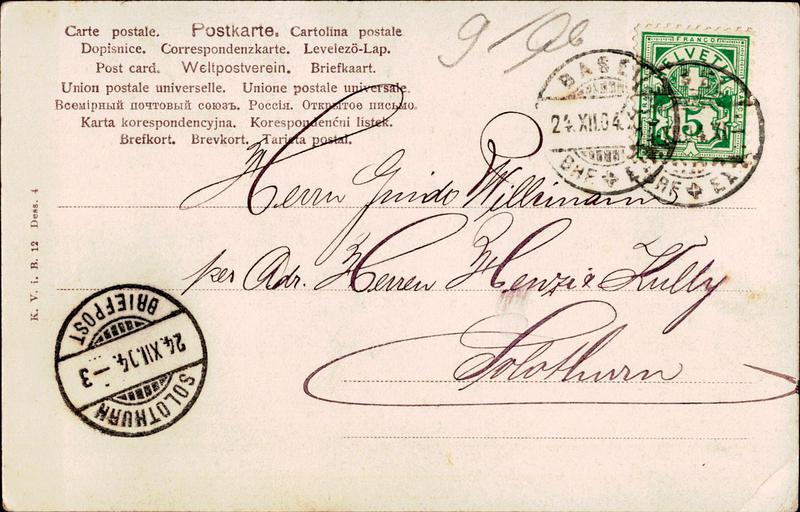 Carte postale. Postkarte. Cartolina postale
Dopisnice. Correspondenzkarte. Levelező-Lap.
Post card. Weltpostverein. Briefkaart.
Union postale universelle. Unione postale universale.
Всемірный почтовый союзъ. Россія. Открытое письмо.
Karta korespondencyjna. Korespondenční listek.
Brefkort. Brevkort. Tarjeta postal.
FRANCO
HELVETIA
5
BASEL
24.XII.04.
BHF EXP
Herrn Guido Willimann
per Adr. Herren Henzi & Kully
Solothurn
K. V. i. B. 12 Dess. 4
BRIEFPOST
24.XII.04.–3
SOLOTHURN